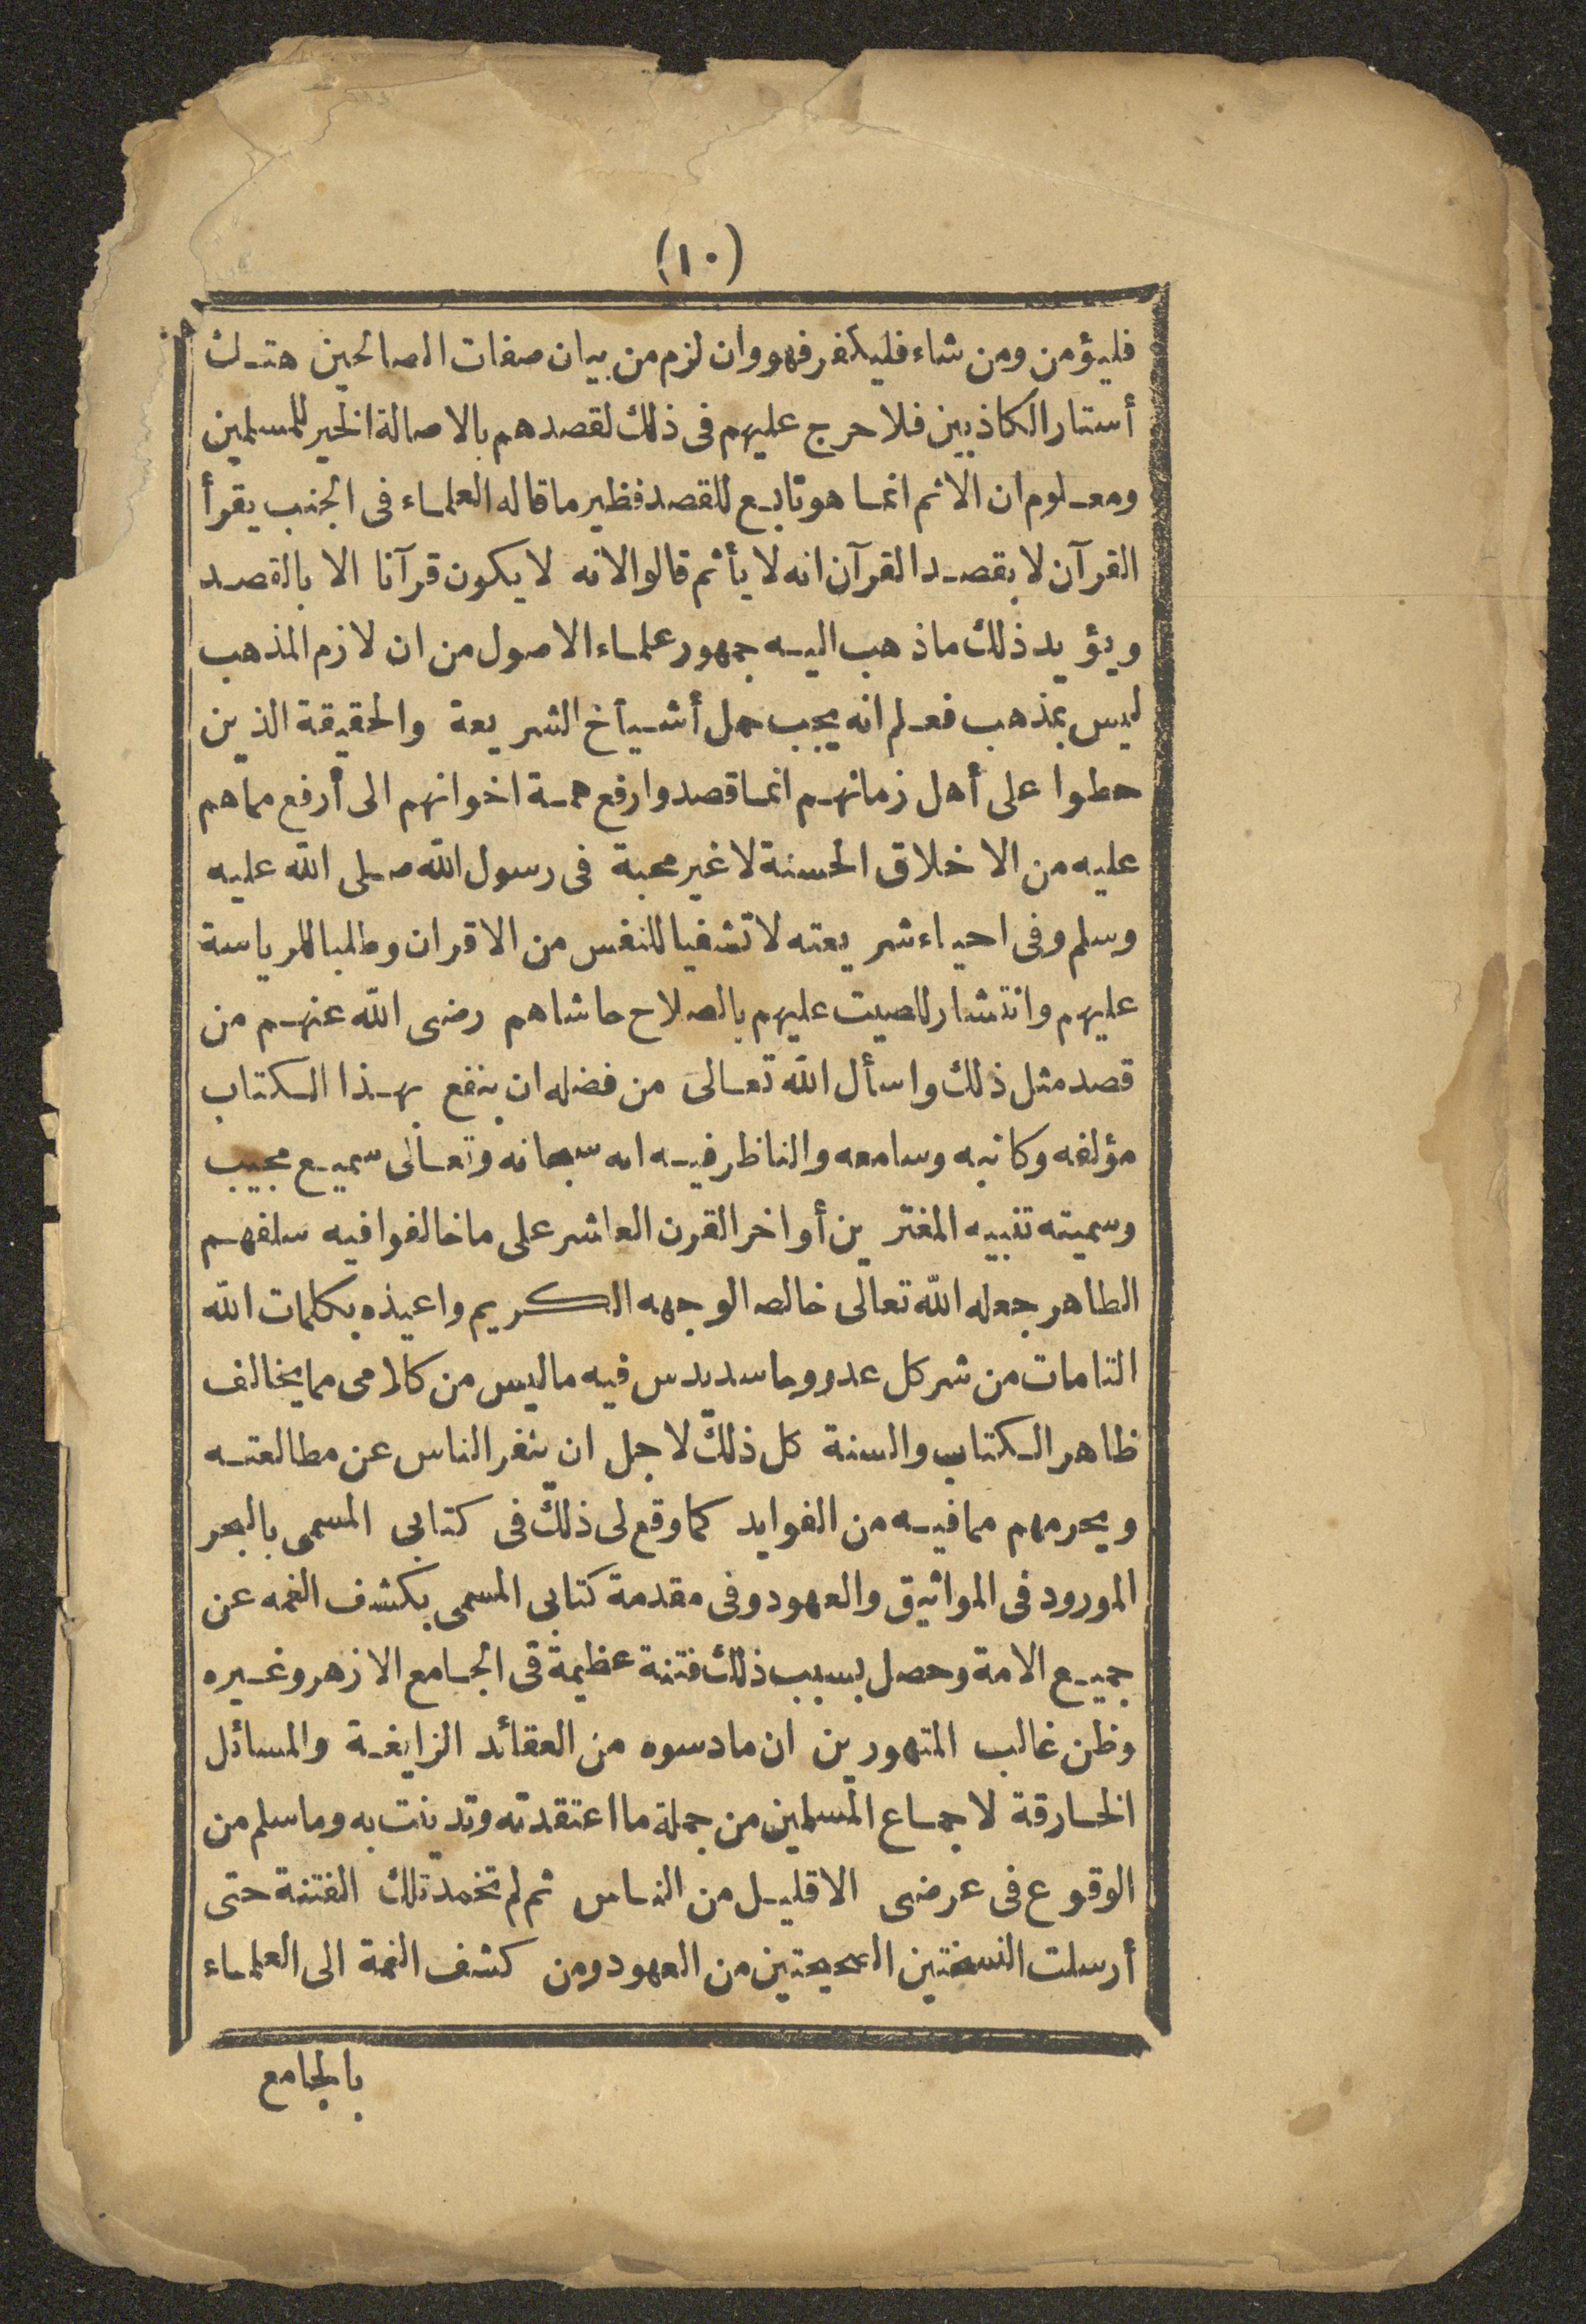 (١٠)
فليؤمن ومن شاء فليكفر فهو وان لزم من بيان صفات الصالحين هتك
أستار الكاذبين فلا حرج عليهم فى ذلك لقصدهم بالاصالة الخير للمسلمين
ومعلوم ان الاثم انما هو تابع للقصد فنظير ما قاله العلماء فى الجنب يقرأ
القرآن لا بقصد القرآن انه لا يأثم قالوا لانه لا يكون قرآنا الا بالقصد
ويؤيد ذلك ما ذهب اليه جمهور علماء الاصول من ان لازم المذهب
ليس بمذهب فعلم انه يجب حمل أشياخ الشريعة والحقيقة الذين
حطوا على أهل زمانهم انما قصدوا رفع همة اخوانهم الى أرفع مما هم
عليه من الاخلاق الحسنة لا غير محبة فى رسول الله صلى الله عليه
وسلم وفى احياء شريعته لا تشفيا للنفس من الاقران وطلبا للرياسة
عليهم وانتشار للصيت عليهم بالصلاح حاشاهم رضى الله عنهم من
قصد مثل ذلك واسأل الله تعالى من فضله ان ينفع بهذا الكتاب
مؤلفه وكاتبه وسامعه والناظر فيه انه سبحانه وتعالى سميع مجيب
وسميته تنبيه المغترين أواخر القرن العاشر على ما خالفوا فيه سلفهم
الطاهر جعله الله تعالى خالصا لوجهه الكريم واعيذه بكلمات الله
التامات من شر كل عدو وحاسد يدس فيه ما ليس من كلامى مما يخالف
ظاهر الكتاب والسنة كل ذلك لاجل ان ينفر الناس عن مطالعته
ويحرمهم مما فيه من الفوايد كما وقع لى ذلك فى كتابى المسمى بالبحر
المورود فى المواثيق والعهود وفى مقدمة كتابى المسمى بكشف الغمه عن
جميع الامة وحصل بسبب ذلك فتنة عظيمة فى الجامع الازهر وغيره
وظن غالب المتهورين ان ما دسوه من العقائد الزايغة والمسائل
الخارقة لاجماع المسلمين من جملة ما اعتقدته وتدينت به وما سلم من
الوقوع فى عرضى الا قليل من الناس ثم لم تخمد تلك الفتنة حتى
أرسلت النسختين الصحيحتين من العهود ومن كشف الغمة الى العلماء
بالجامع